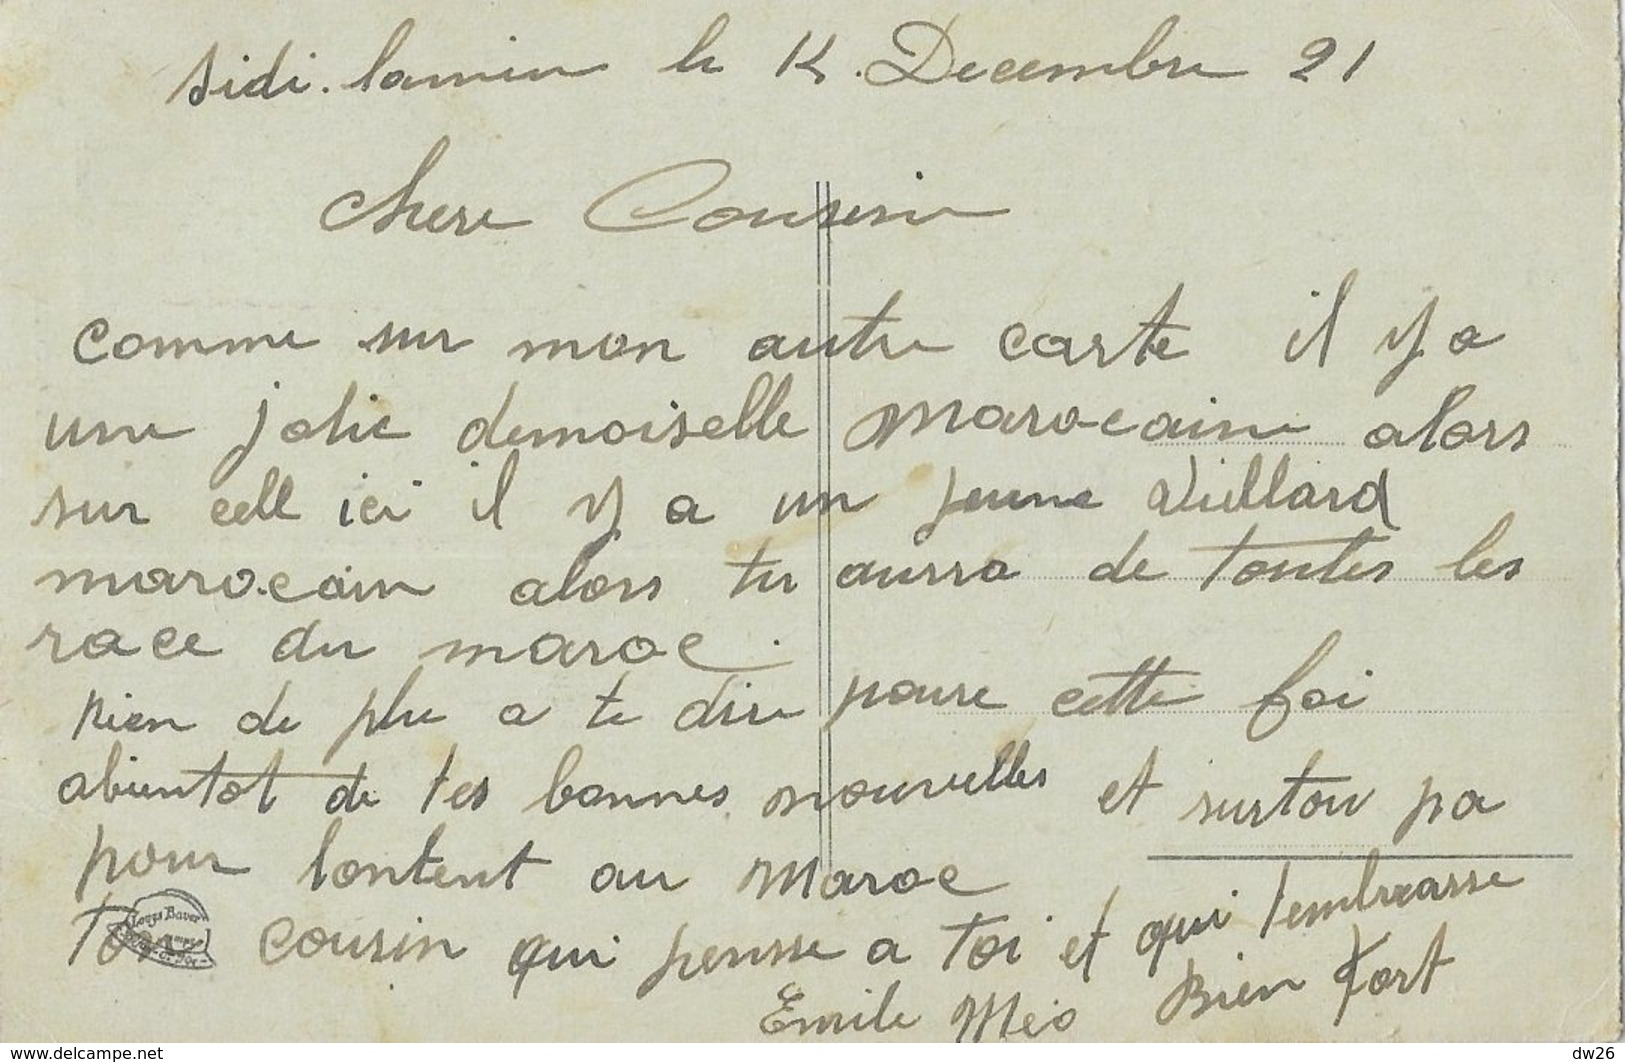 Sidi. lamin le 14. Decembre 21
Chere Cousin
comme sur mon autre carte il y a
une jolie demoiselle marocaine alors
sur cell ici il y a un jeune viellard
marocain alors tu aurra de toutes les
race du maroc.
rien de plu a te dire poure cette foi
abientot de tes bonnes nouvelles et surtou pa
pour lontent au Maroc
Ton cousin qui pensse a toi et qui t'embrasse
Emile Bien Fort
www.delcampe.net dw26